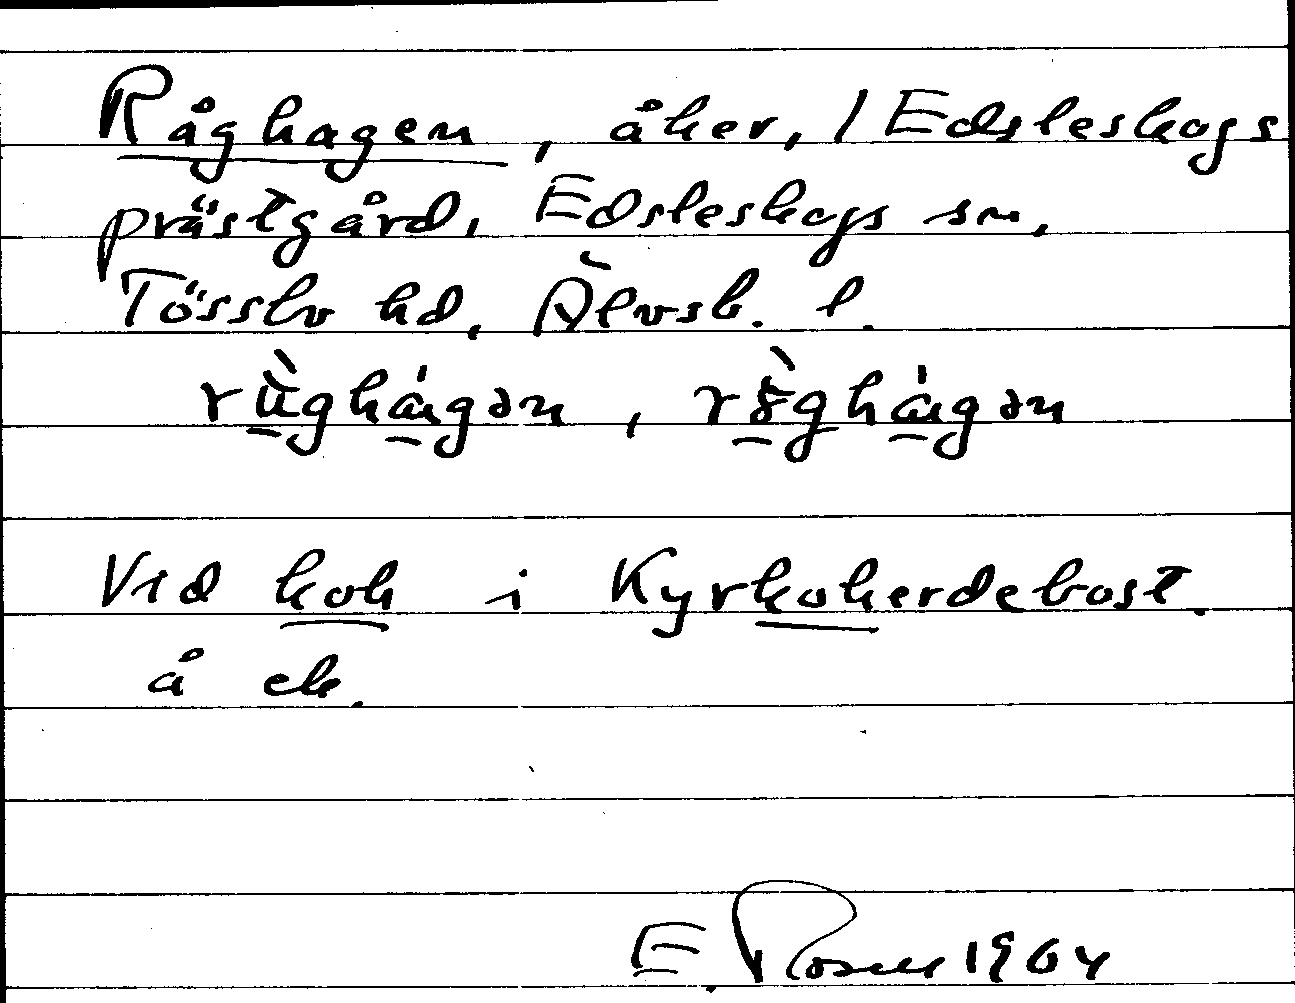 Råghagen, åker, / Edsleskogs
prästgård, Edsleskogs sn,
Tösslv hd, Älvsb. l.
rùghágən, rɤ̀ghágən
Vid kok i Kyrkoherdebost.
å ek.
E. Rosell 1964